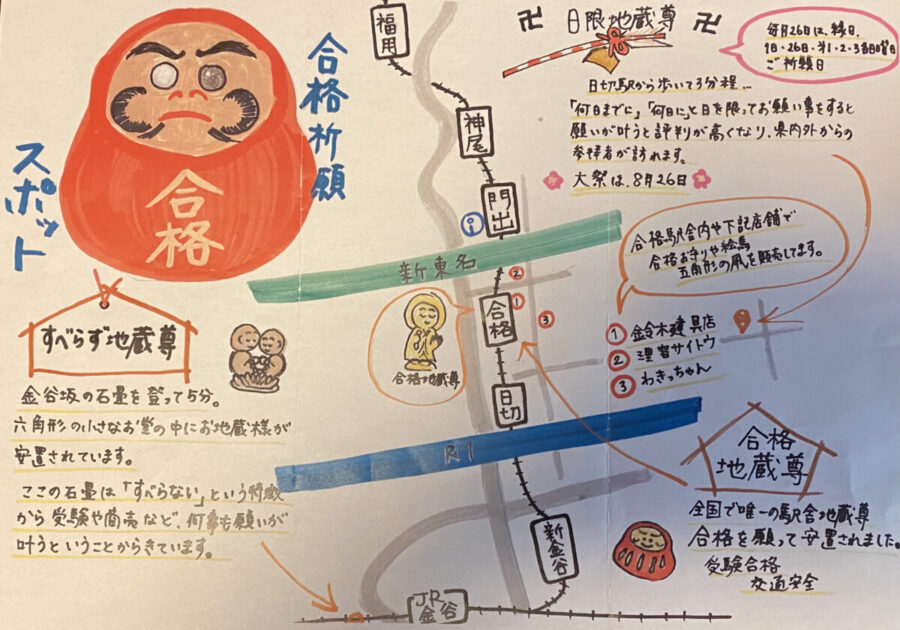 合格祈願
スポット
合格
福用
神尾
門出
新東名
合格
合格地蔵尊
日切
R1
新金谷
JR
金谷
①
②
③
卍 日限地蔵尊 卍
毎月26日は、縁日、
1日・26日・第1・2・3日曜日
ご祈願日
日切駅から歩いて3分程...
「何日までに」「何日に」と日を限ってお願い事をすると
願いが叶うと評判が高くなり、県内外からの
参拝者が訪れます。
大祭は、8月26日
合格駅舎内や下記店舗で
合格お守りや絵馬
五角形の凧を販売してます。
① 鈴木建具店
② 理容サイトウ
③ わきっちゃん
すべらず地蔵尊
金谷坂の石畳を登って5分。
六角形の小さなお堂の中にお地蔵様が
安置されています。
ここの石畳は「すべらない」という特徴
から受験や商売など、何事も願いが
叶うということからきています。
合格
地蔵尊
全国で唯一の駅舎地蔵尊
合格を願って安置されました。
受験合格
交通安全